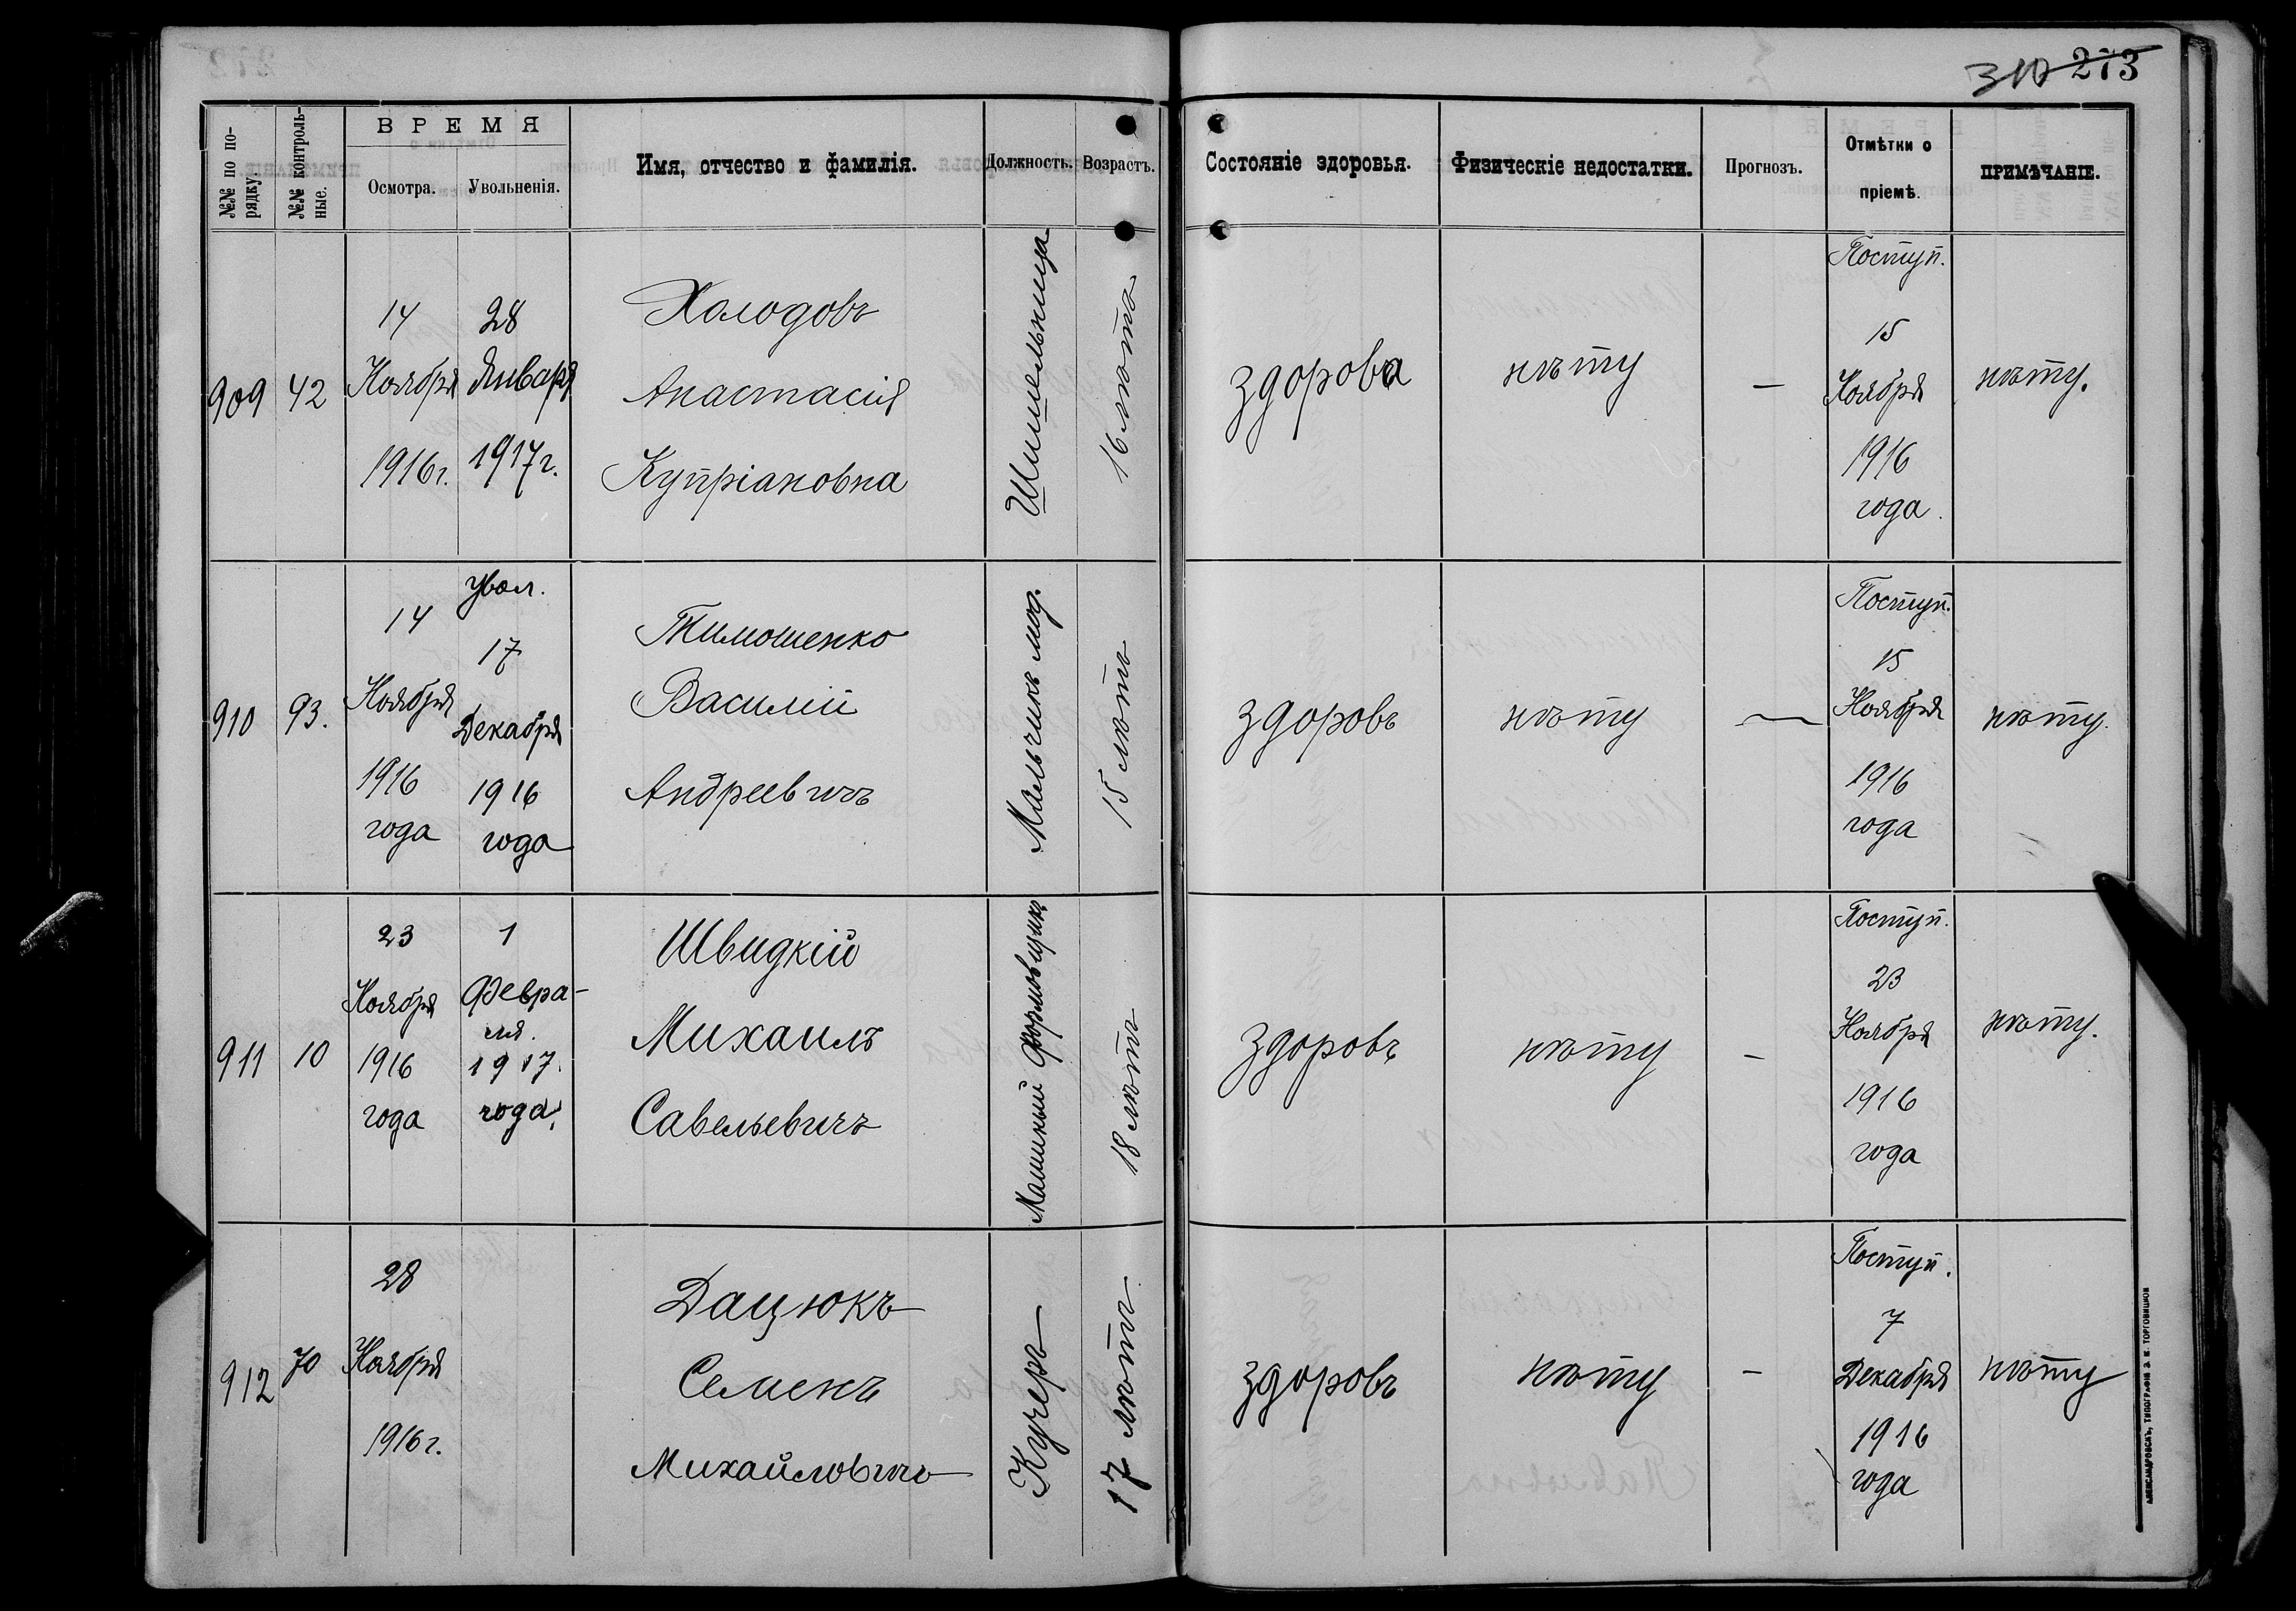 310 273
№№ по по-
рядку.
№№ контроль-
ные.
ВРЕМЯ
Осмотра.
Увольненія.
Имя, отчество и фамилія.
Должность.
Возрастъ.
Состояніе здоровья.
Физическіе недостатки.
Прогнозъ.
Отмѣтки о
пріемѣ.
ПРИМѢЧАНІЕ.
909
42
14
Ноября
1916г.
28
Января
1917г.
Холодовъ
Анастасія
Купріановна
Шишельница
16 лѣтъ
здорова
нѣту
—
Поступ.
15
Ноября
1916
года.
нѣту.
910
93.
14
Ноября
1916
года
Увол.
17
Декабря
1916
года
Тимошенко
Василій
Андреевичъ
Мальчикъ мод.
15 лѣтъ
здоровъ
нѣту
—
Поступ.
15
Ноября
1916
года
нѣту.
911
10
23
Ноября
1916
года
1
Февра-
ля.
1917.
года
Швидкій
Михаилъ
Савельевичъ
Машиный формовщикъ
18 лѣтъ
здоровъ
нѣту
—
Поступ.
23
Ноября
1916
года
нѣту.
912
70
28
Ноября
1916г.
Дацюкъ
Семенъ
Михайловичъ
Кучеръ
17 лѣтъ
здоровъ
нѣту
—
Поступ.
7
Декабря
1916
года
нѣту
АЛЕКСАНДРОВСКЪ, ТИПОГРАФІЯ Э. И. ТОРГОВИЦКОЙ